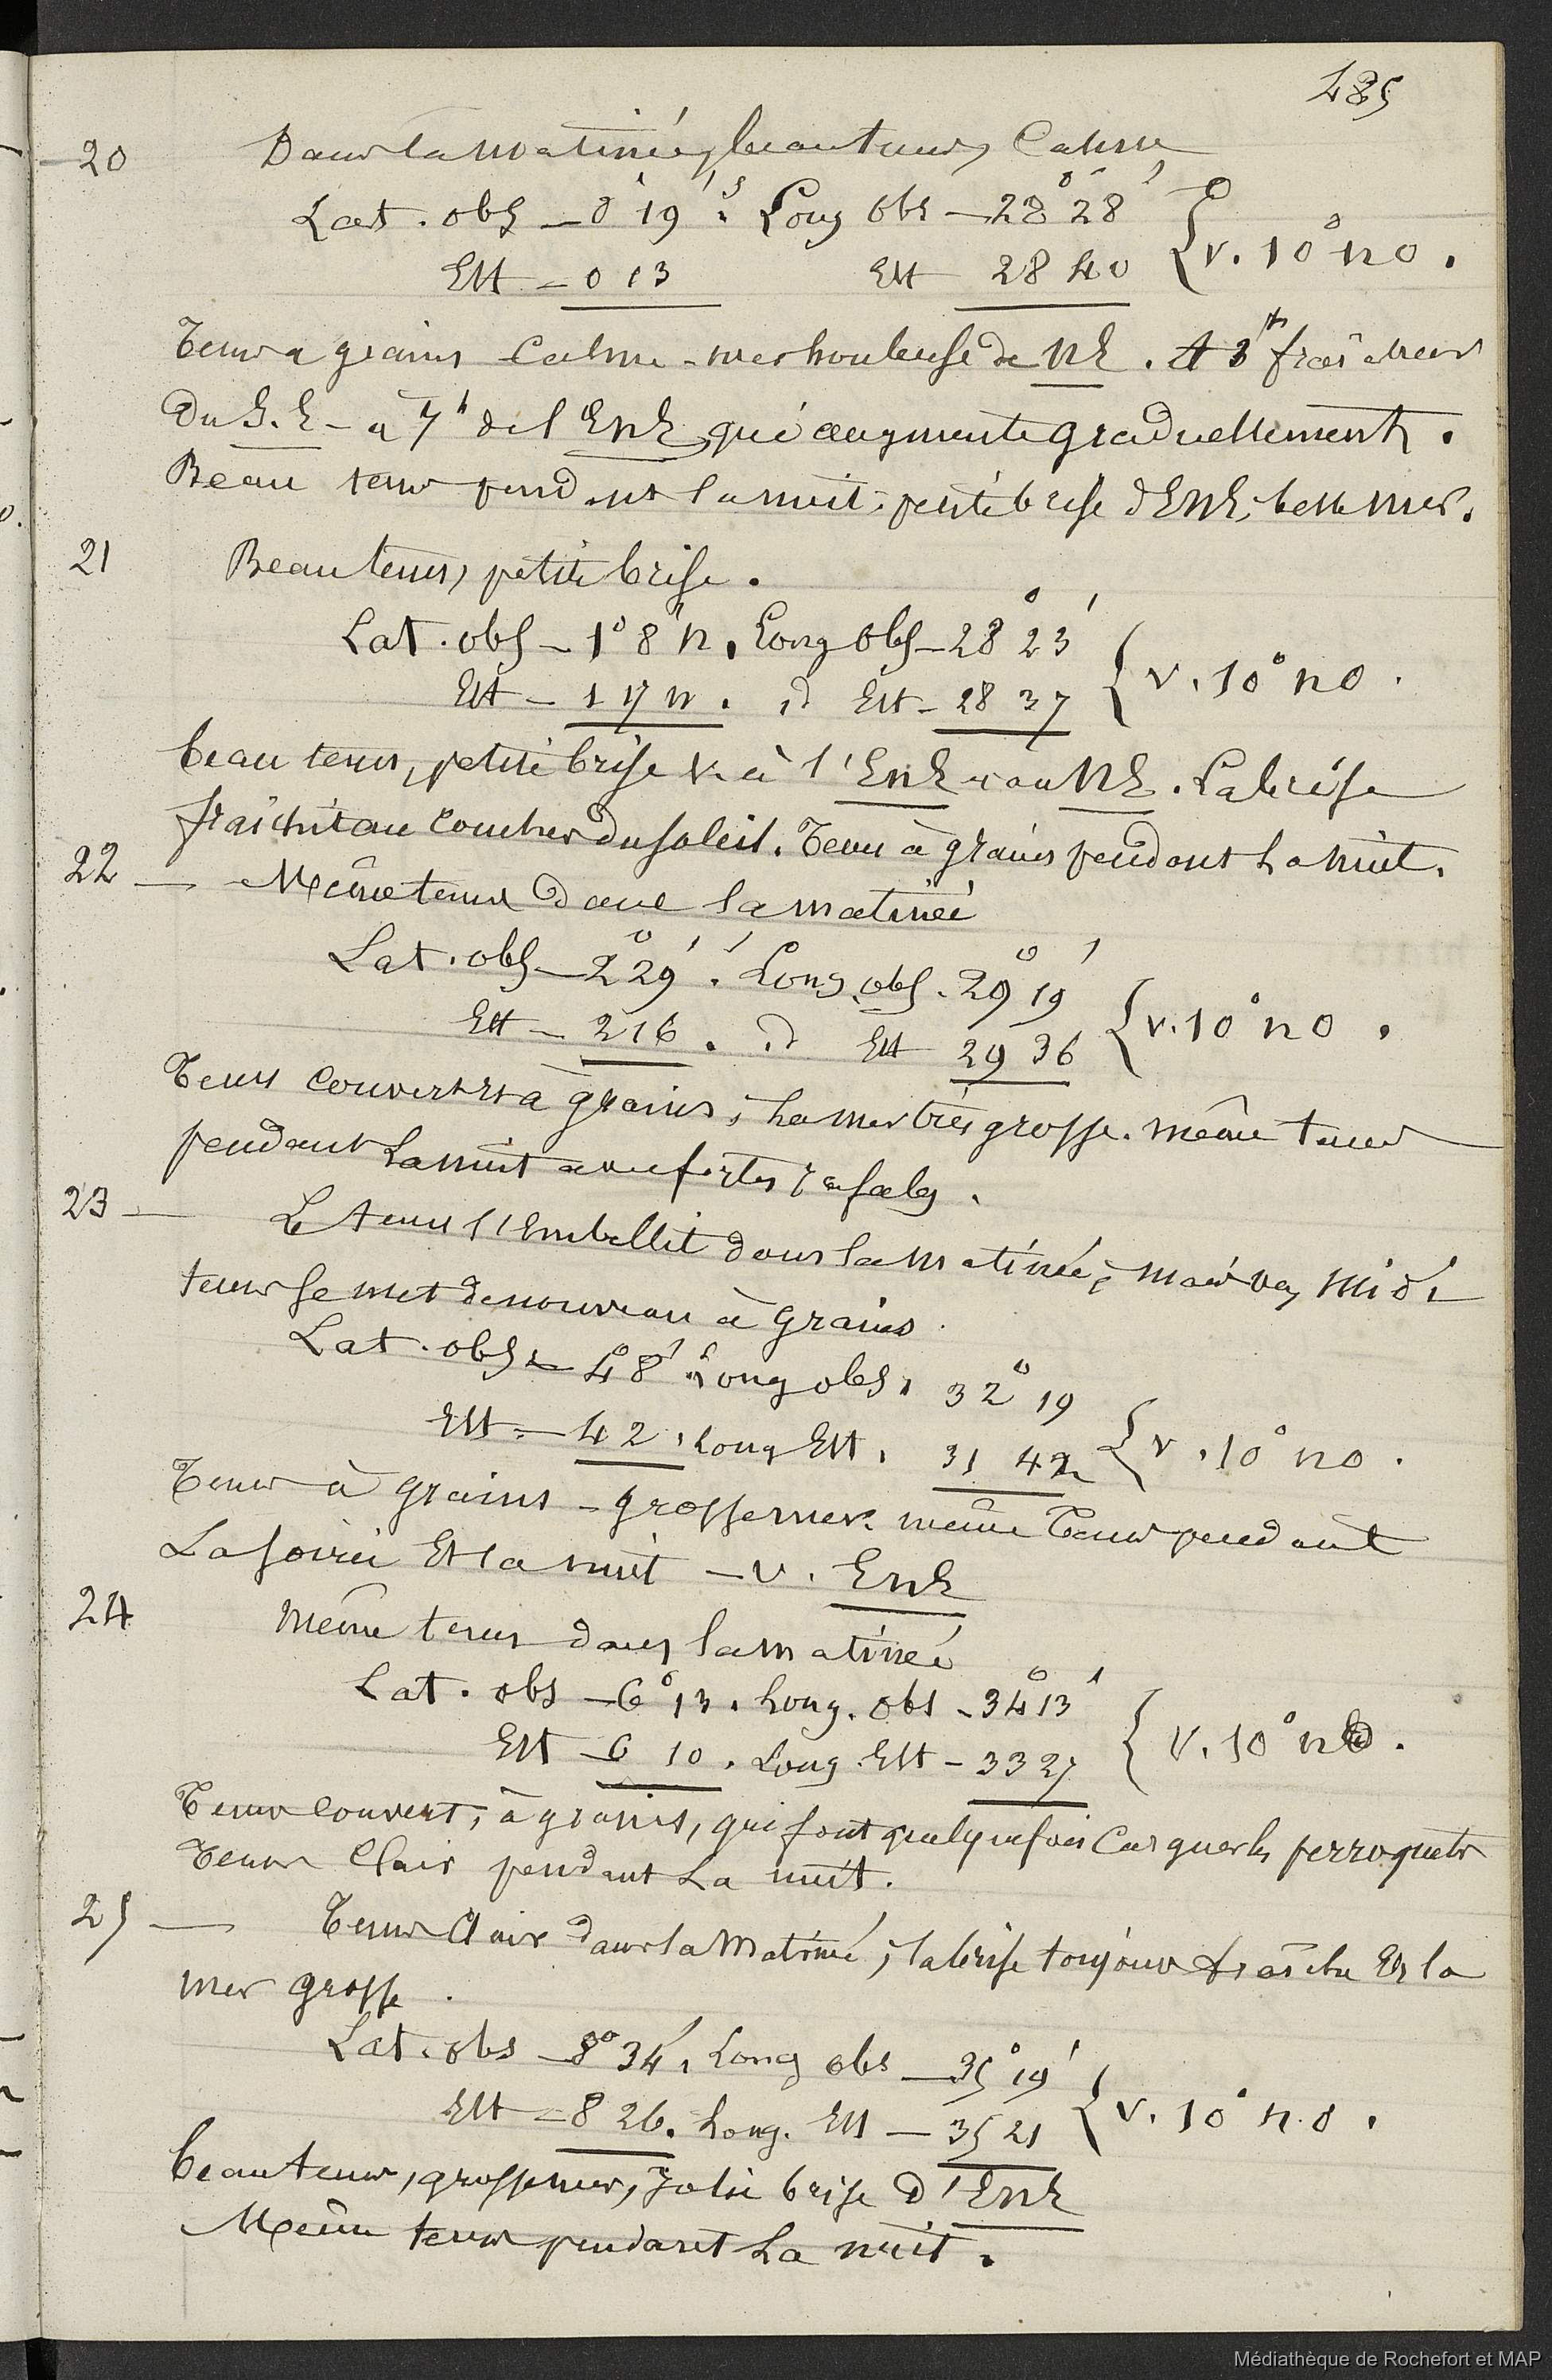 485
20 Dans la matinée, beau tems, Calme
Lat. obs — 0° 19' S. Long obs — 28° 28'
Est — 0 13 Est 28 40 { v. 10° no.
Tems a grains Calme - mer houleuse de NE. A 3h fraicheur
Du S. E - a 7h de l'ENE qui augmente graduellement.
Beau tems pendant la nuit, petite brise d'ENE, belle mer.
21 Beau tems, petite brise.
Lat. obs — 1° 8' N. Long obs — 28° 23'
Est — 1 17 N. id Est — 28 37 { v. 10° no.
beau tems, petite brise v. à l'ENE et au NE. La brise
fraichit au coucher du soleil. Tems à grains pendant La nuit.
22 — Même tems dans la matinée
Lat. obs — 2° 29'. Long. obs. 29° 19'
Est — 2 16. id Est 29 36 { v. 10° no.
Tems couvert et à grains, La mer très grosse. même tems
pendant La nuit avec fortes rafales.
23 — Le tems s'embellit dans la matinée, mais vers midi
tems se met de nouveau à grains.
Lat. obs — 4° 8' Long obs. 32° 19
Est — 4 2. Long Est. 31 42 { v. 10° no.
Tems à grains - grosse mer. même Tems pendant
La soirée Et la nuit — v. ENE
24 même tems dans la matinée
Lat. obs — 6° 13. Long. obs — 34° 13'
Est — 6 10. Long Est — 33 27 { v. 10° no.
Tems couvert, à grains, qui font quelquefois Carguer les perroquets
Tems Clair pendant La nuit.
25 — Tems Clair dans la matinée, la brise toujours fraîche Et la
mer grosse.
Lat. obs — 8° 34'. Long obs — 35° 19'
Est — 8 26. Long. Est — 35 21 { v. 10° n.o.
beau tems, grosse mer, Jolie brise d'ENE
Même tems pendant La nuit.
Médiathèque de Rochefort et MAP